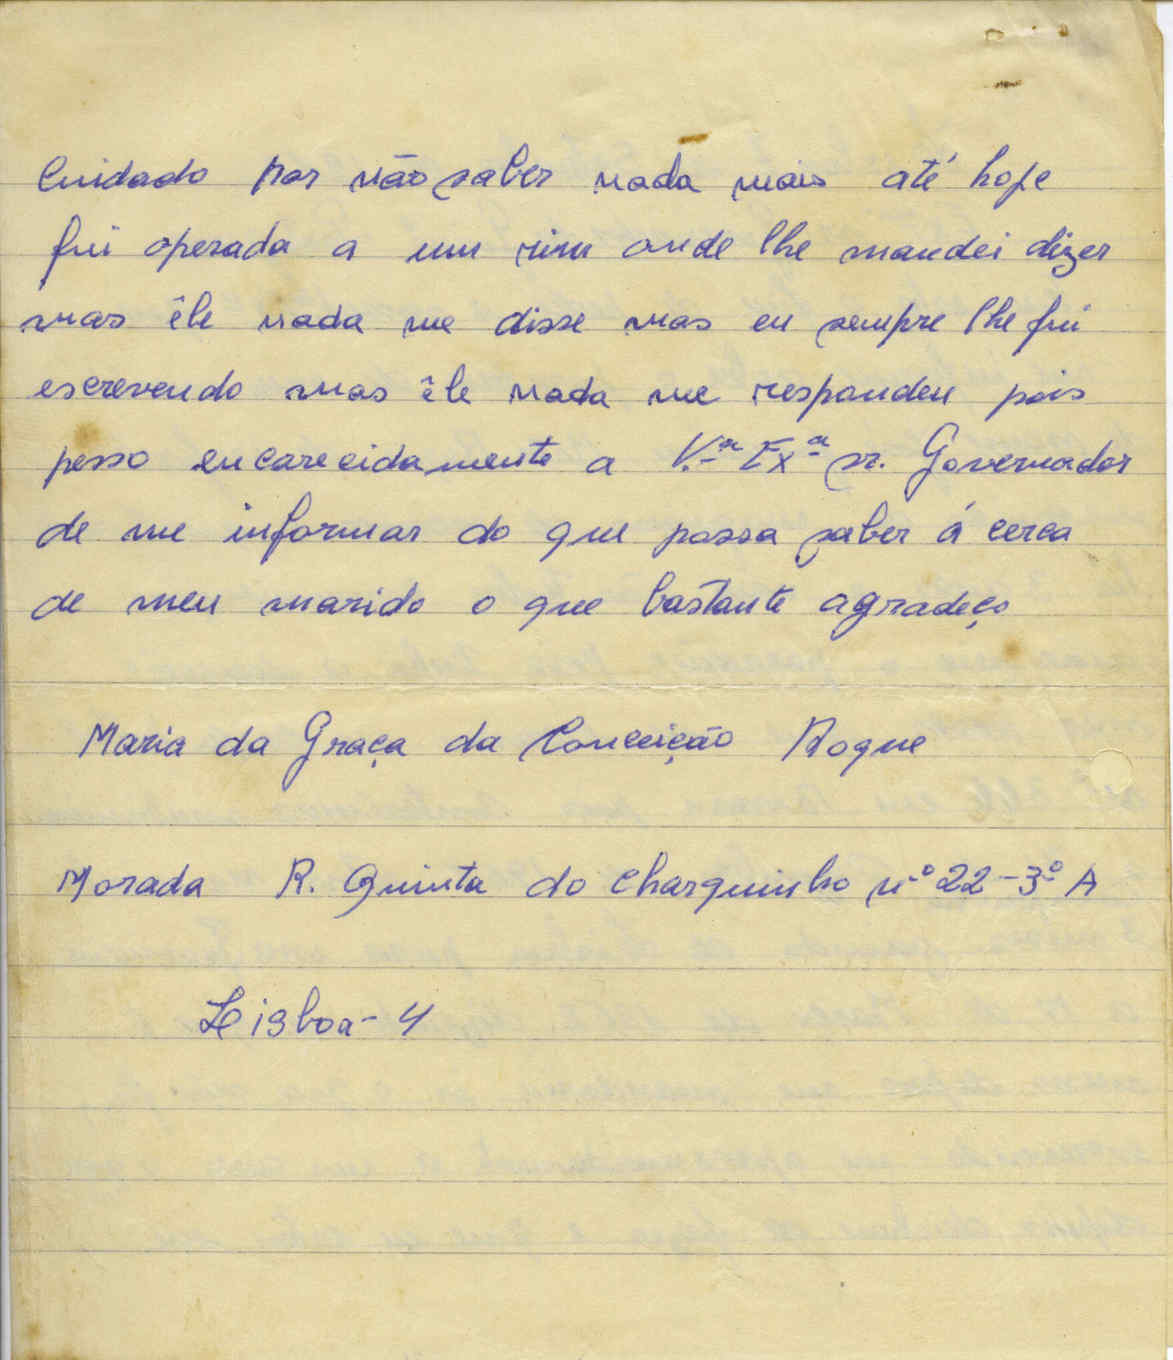 Cuidado por não saber nada mais até hoje
fui operada a um rim onde lhe mandei dizer
mas êle nada me disse mas eu sempre lhe fui
escrevendo mas êle nada me respondeu pois
pesso encarecidamente a V.ª Exª sr. Governador
de me informar do que possa saber á cerca
de meu marido o que bastante agradeço
Maria da Graça da Conceição Roque
Morada R. Quinta do Charquinho nº 22-3º A
Lisboa-4